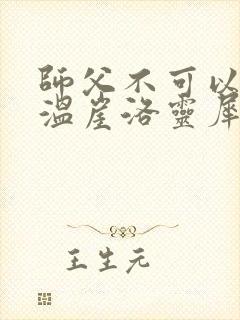 師父不可以
溫崖洛靈犀
王生元